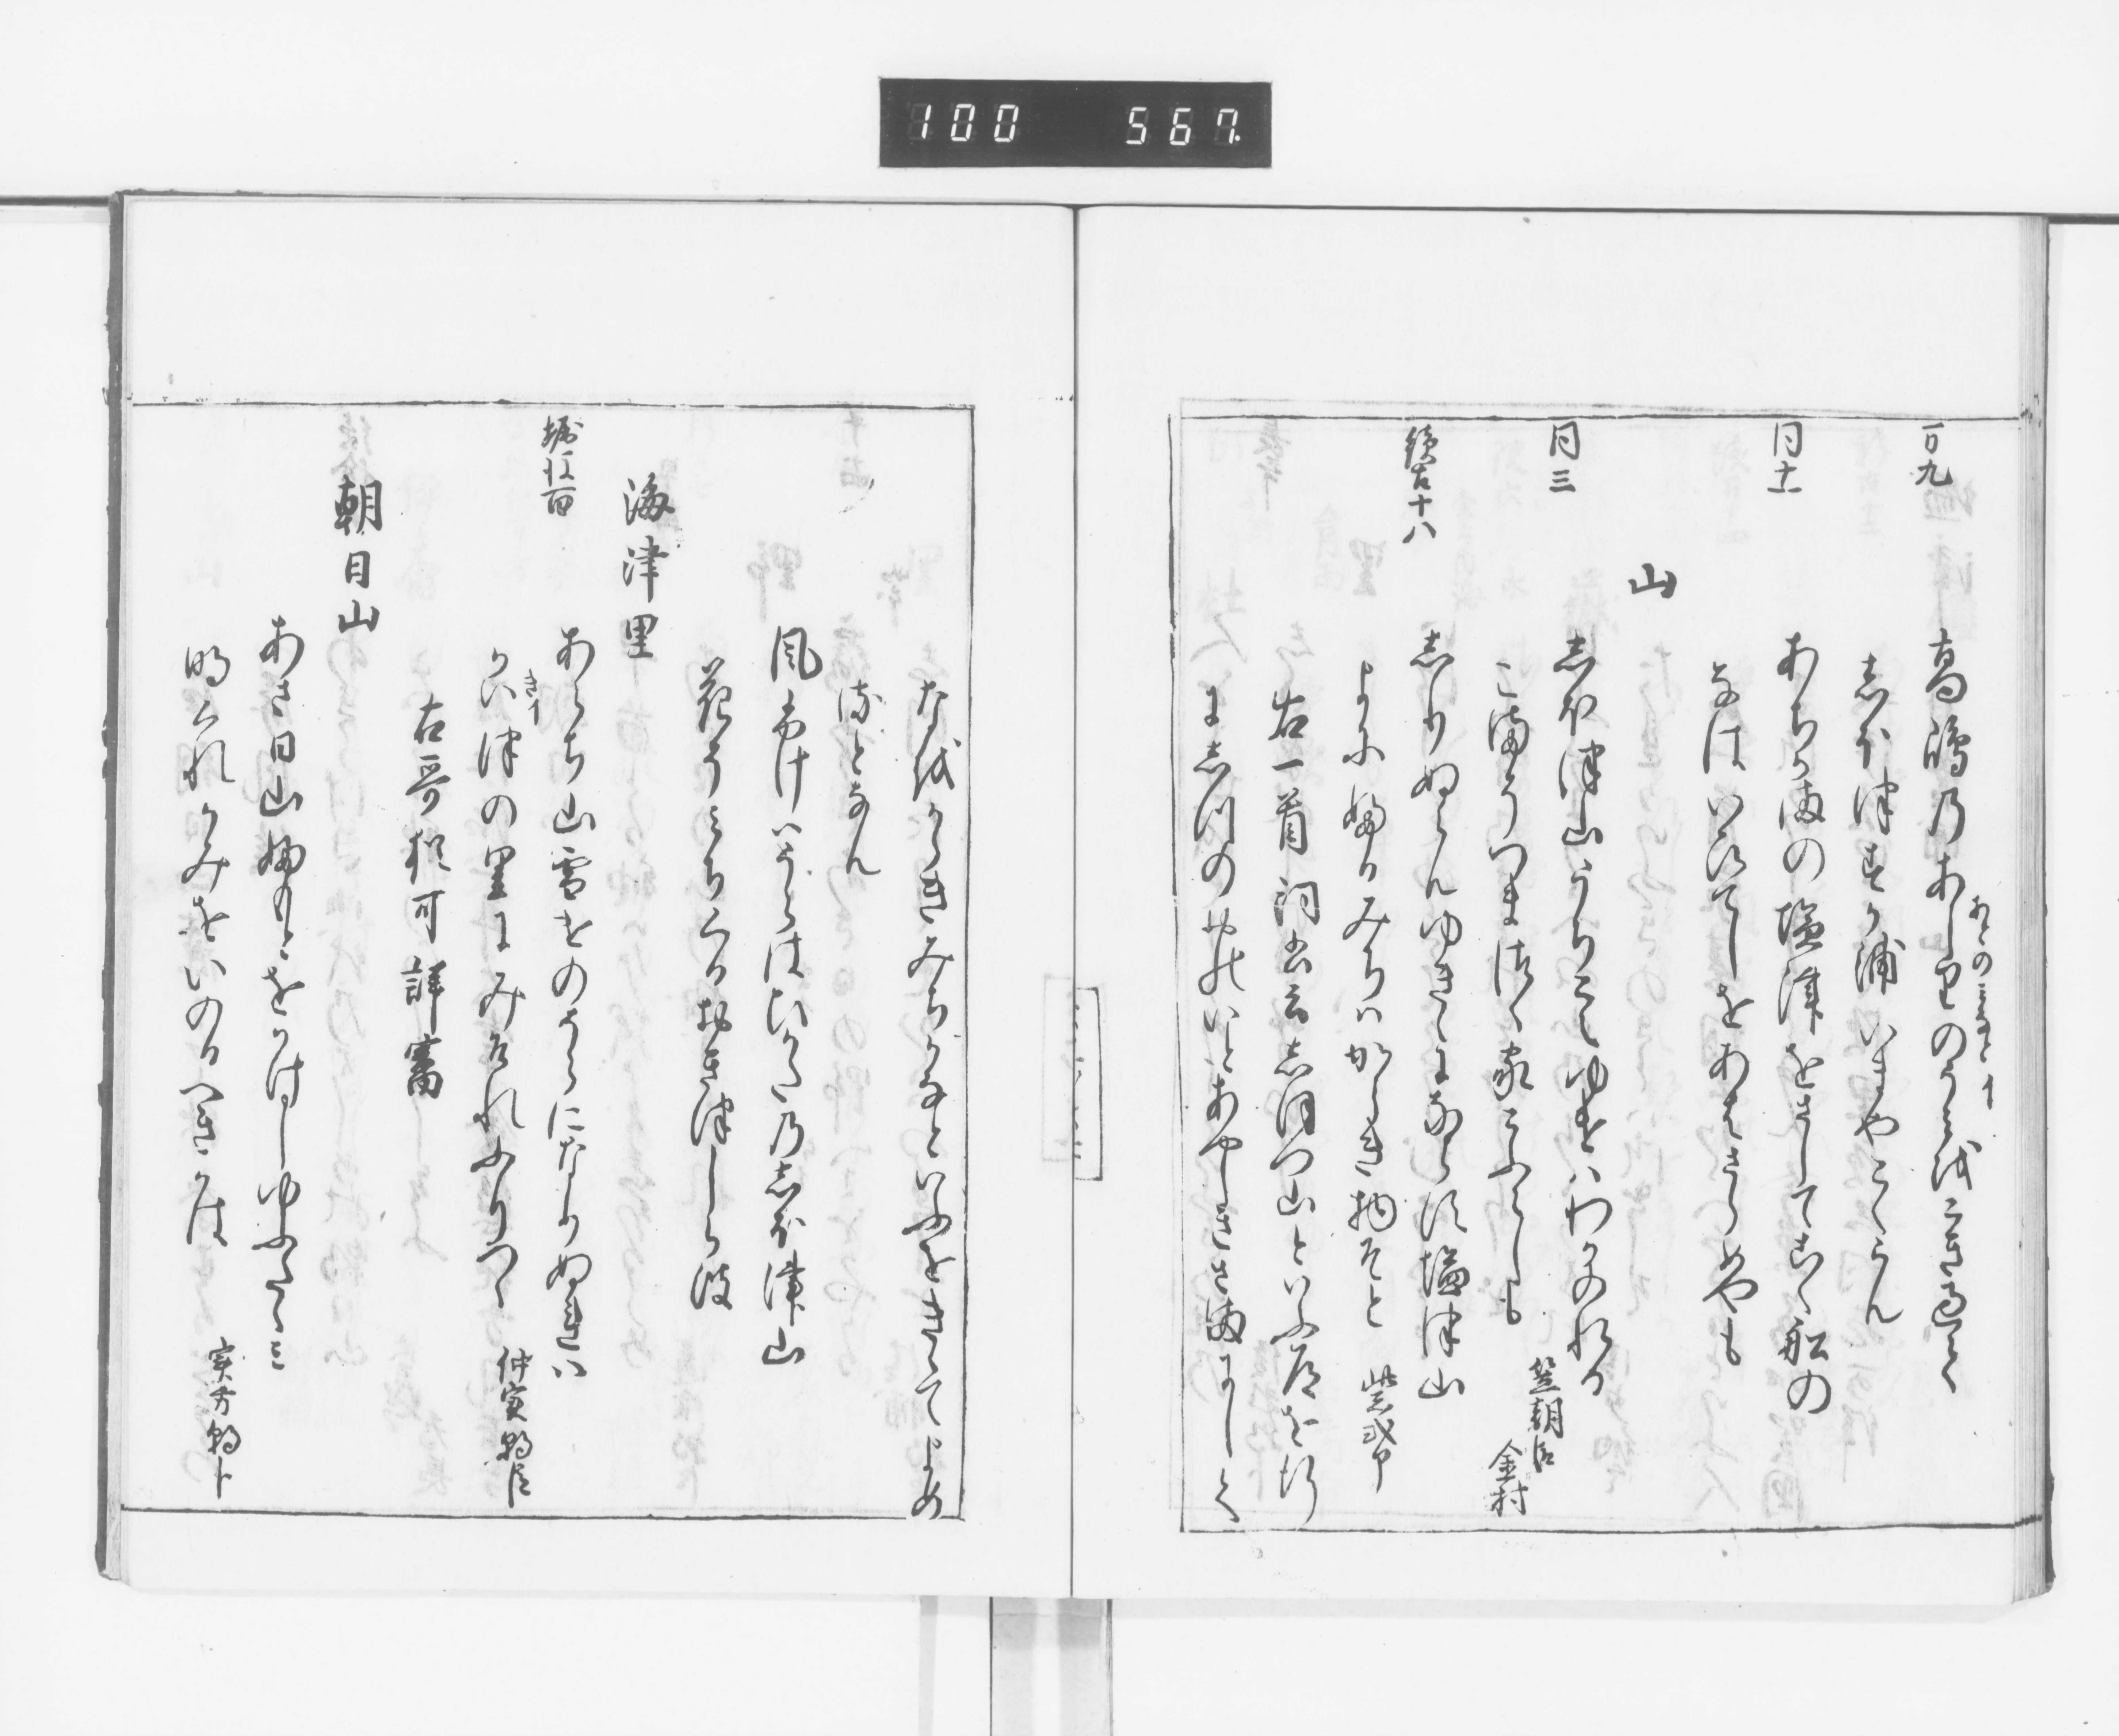 100 567
万九
高嶋乃あしりのうミを
あとのミなと イ
こき過て
しほ津すか浦いまやこくらん
同十一
あちかまの塩津をさしてこく船の
なはいひてしをあはさらめやも
山
同三
しほ津山うちこえゆけはわかのれる
こまそつまつく家こふらしも
笠朝臣
金村
続古十八
しりぬらんゆきゝになら須塩津山
よにふるみちはからき物そと
紫式部
右一首詞書云しほつ山といふ道を行
にしつのおのいとあやしきさまにして
なをからきみちかなといふをきゝてよめ
るとなん
風ふけは
しほ津山
おき津しら波
海津里
堀後百
あらち山雪けのそらになりぬれは
かい津の里にみそれふりつゝ
きイ
仲実朝臣
右哥猶可詳審
朝日山
あさ日山ふもとをかけしゆふたすき
明くれかみをいのるへきかは
実方朝臣